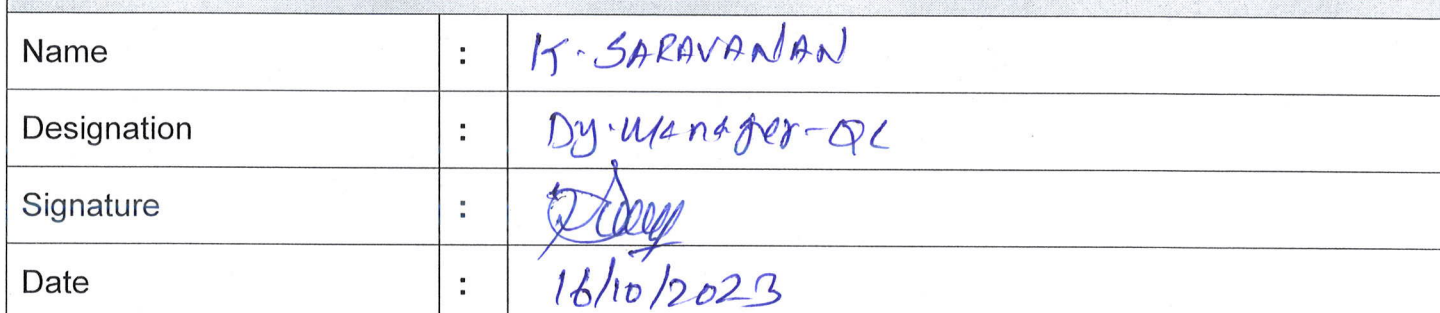 Name : K. SARAVANAN
Designation : Dy. Manager-QC
Signature :
Date : 16/10/2023